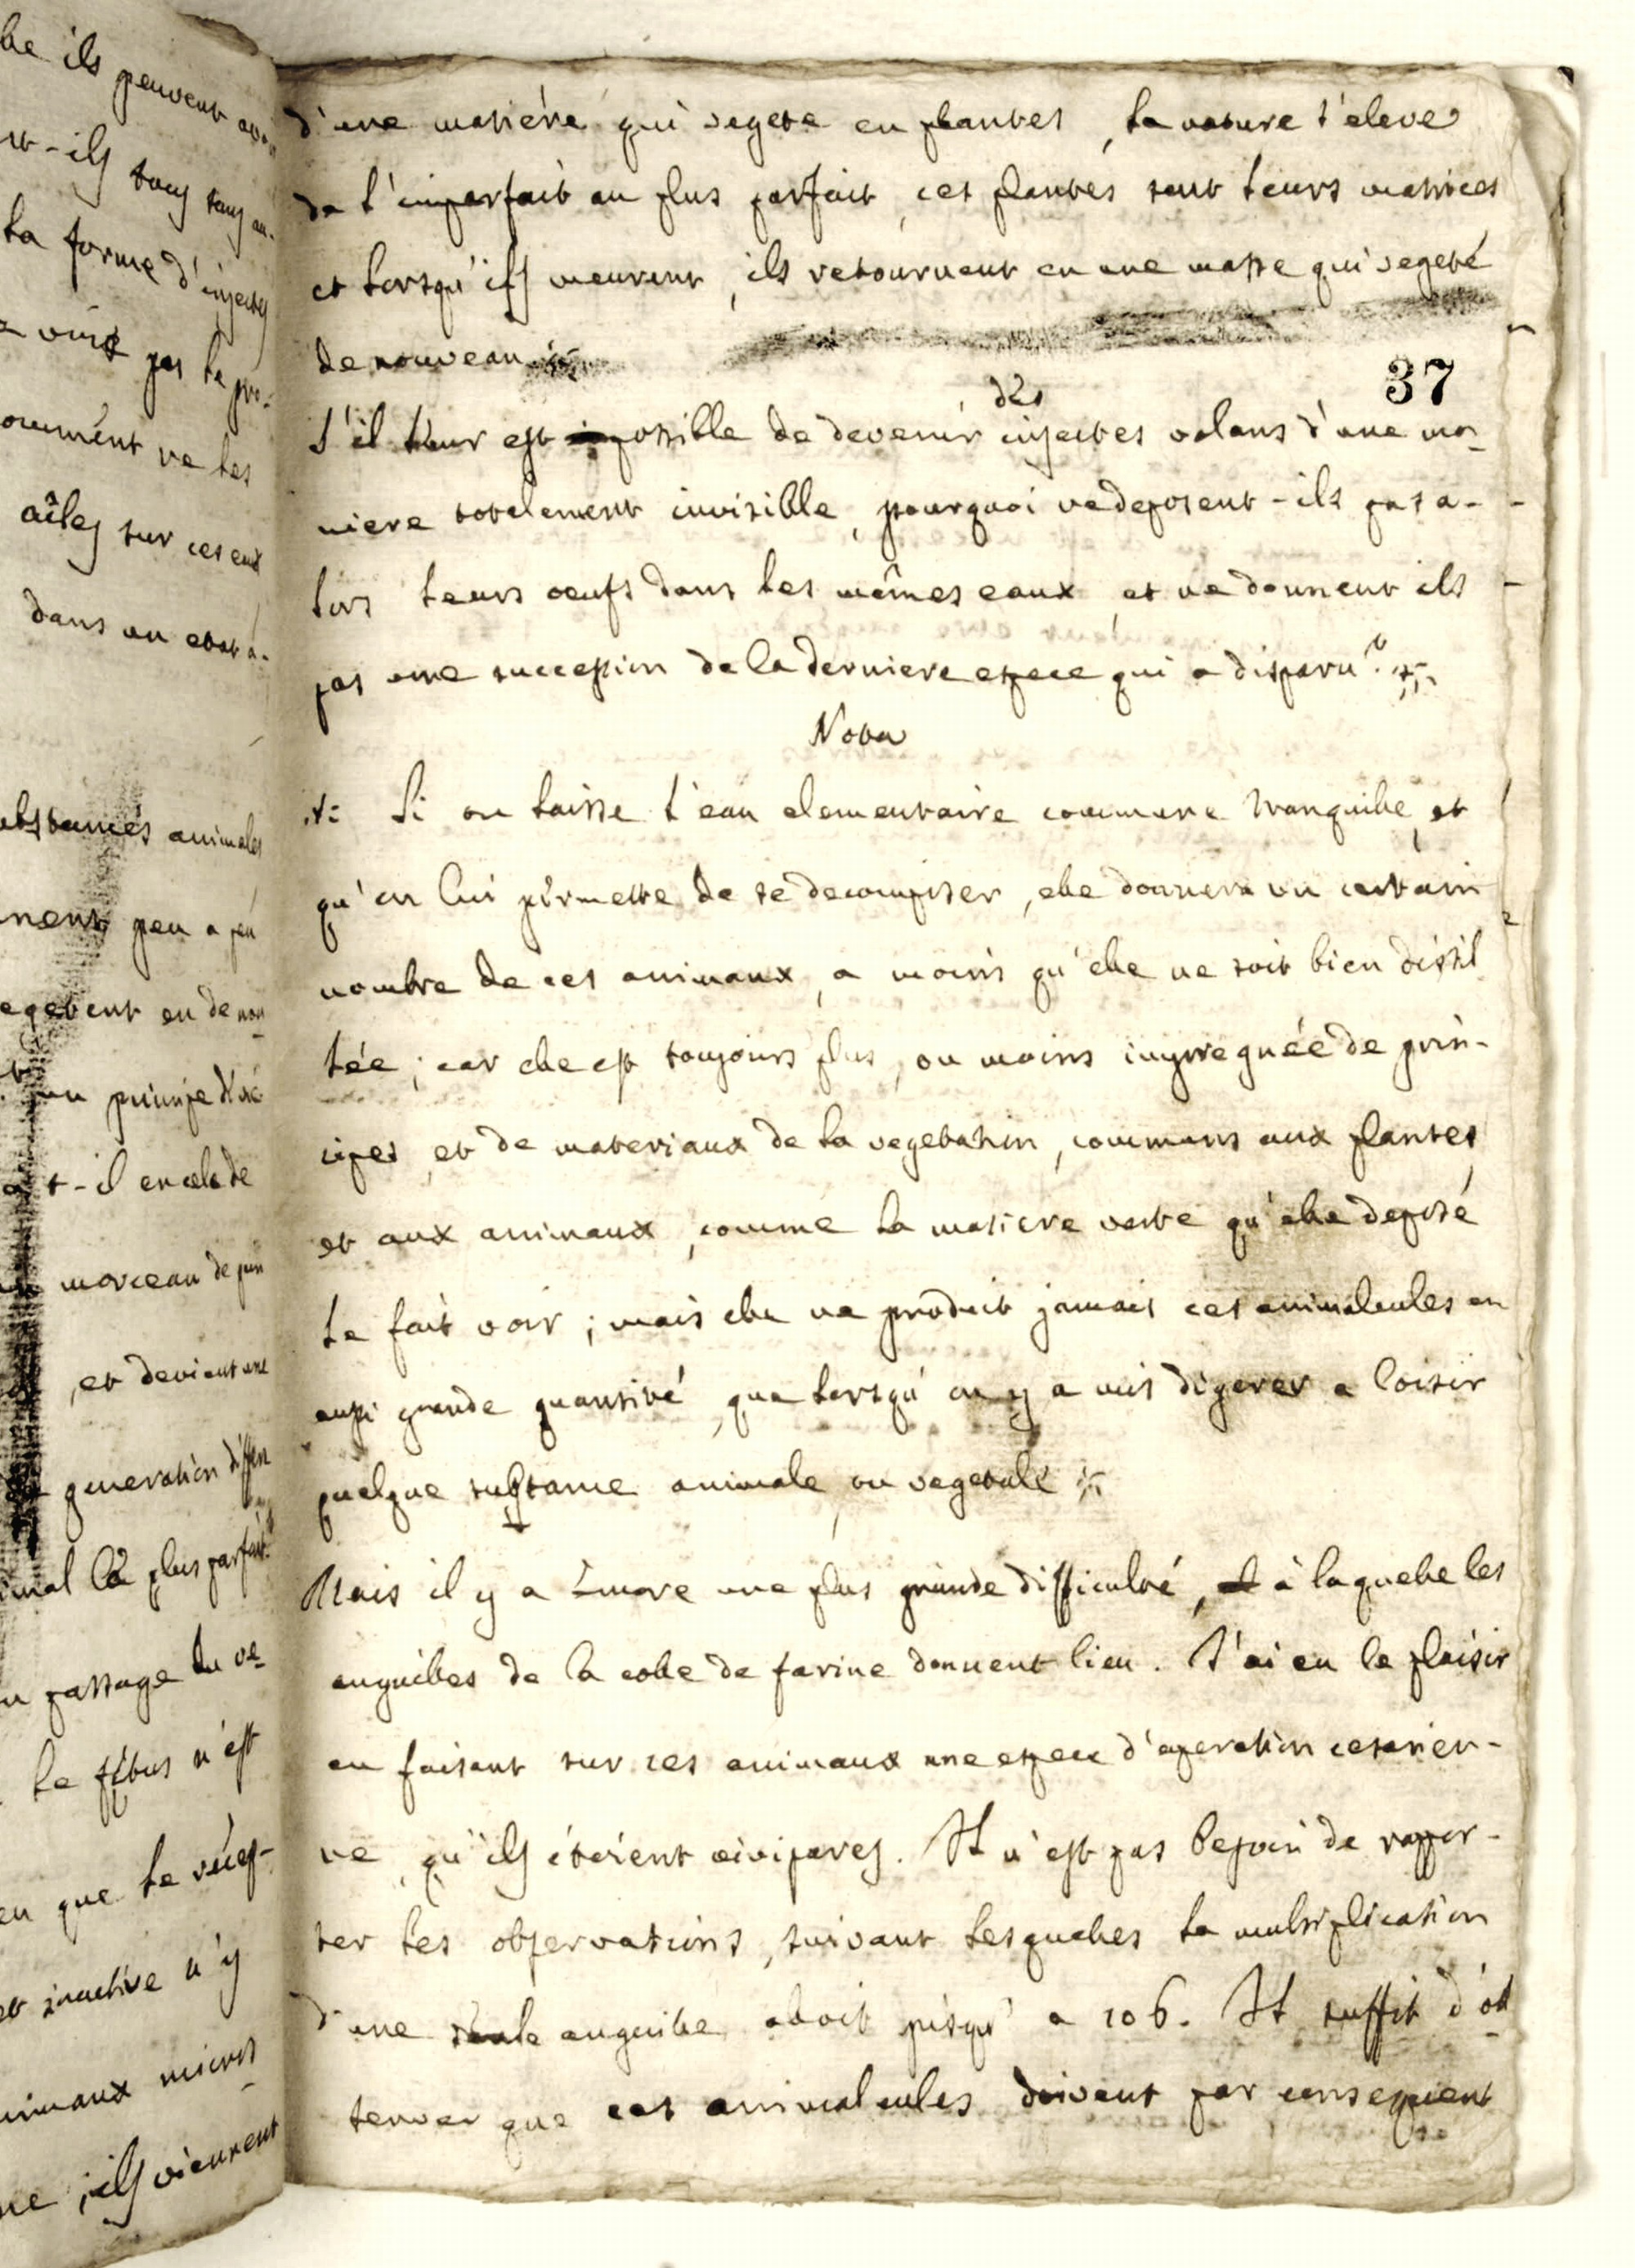 be ils peuvent avo
nt-ils tous sans au-
la forme d'injectes
e vint pas le pro-
omment ne les
aîles sur ces eux
dans un etat a-
ubstances animales
nent peu a peu
egetent en de nou
un principe d've
a t-il en cela de
morceau de pin
, et devient une
generation differ
imal le plus parfait
u passage du ve-
le fétus n'est
en que le récep-
et inactive n'y
nimaux microsc
ne ; ils vieurent
d'une matiére qui vegete en plantes, la nature s'eleve
de l'imparfait au plus parfait, ces plantes sont leurs matrices
et lorsqu'ils meurent, ils retournent en une masse qui vegeté
de nouveau
37
des
S'il leur est possible de devenir injectes volans d'une ma-
niere totalement invisible, pourquoi ne deposent-ils pas a-
lors leurs oeufs dans les mêmes eaux, et ne donnent ils
pas une succession de la derniere espece qui a disparu?
Nota
Si on laisse l'eau elementaire commune tranquille, et
qu'on lui permette de se decomposer, elle donnera un certain
nombre de ces animaux, a moins qu'elle ne soit bien distil
lée; car elle est toujours plus, ou moins impregnée de prin-
cipes, et de materiaux de la vegetation, communs aux plantes
et aux animaux, comme la matiere verte qu'elle deposé
le fait voir; mais elle ne produit jamais ces animalcules en
aussi grande quantité, que lorsqu'on y a mis digerer a loisir
quelque substance animale, ou vegetale
Mais il y a encore une plus grande difficulté, à laquelle les
anguilles de la colle de farine donnent lieu. J'ai eu le plaisir
en faisant sur ces animaux une espece d'operation cesarien-
ne, qu'ils étoient vivipares. Il n'est pas besoin de rappor-
ter les observations, suivant lesquelles la multiplication
d'une seule anguille aloit jusqu' a 106. Il suffit d'ob
server que ces animalcules doivent par consequent